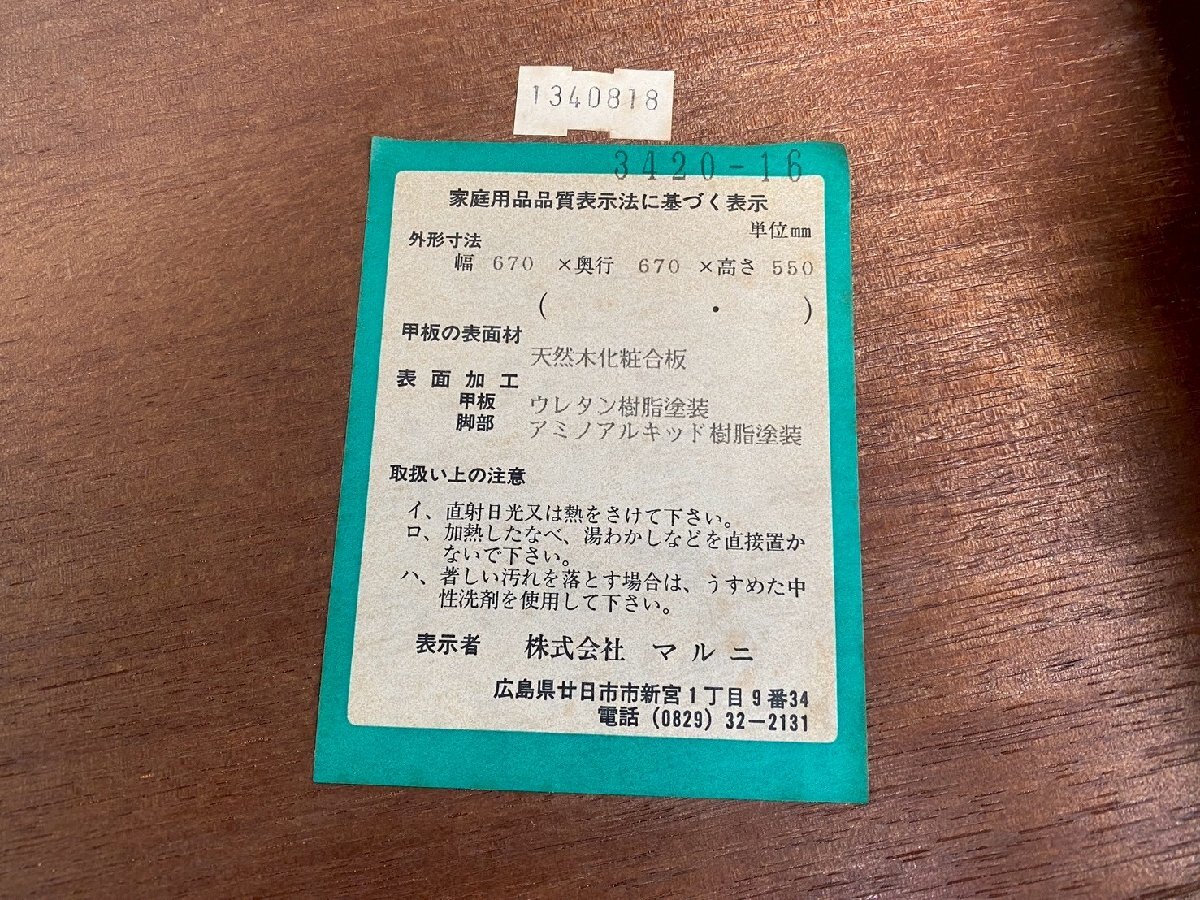 1340818
3420-16
家庭用品品質表示法に基づく表示
単位mm
外形寸法
幅 670 ×奥行 670 ×高さ 550
( ・ )
甲板の表面材
天然木化粧合板
表面加工
甲板 ウレタン樹脂塗装
脚部 アミノアルキッド樹脂塗装
取扱い上の注意
イ、直射日光又は熱をさけて下さい。
ロ、加熱したなべ、湯わかしなどを直接置か
ないで下さい。
ハ、著しい汚れを落とす場合は、うすめた中
性洗剤を使用して下さい。
表示者 株式会社 マルニ
広島県廿日市市新宮1丁目9番34
電話 (0829) 32-2131